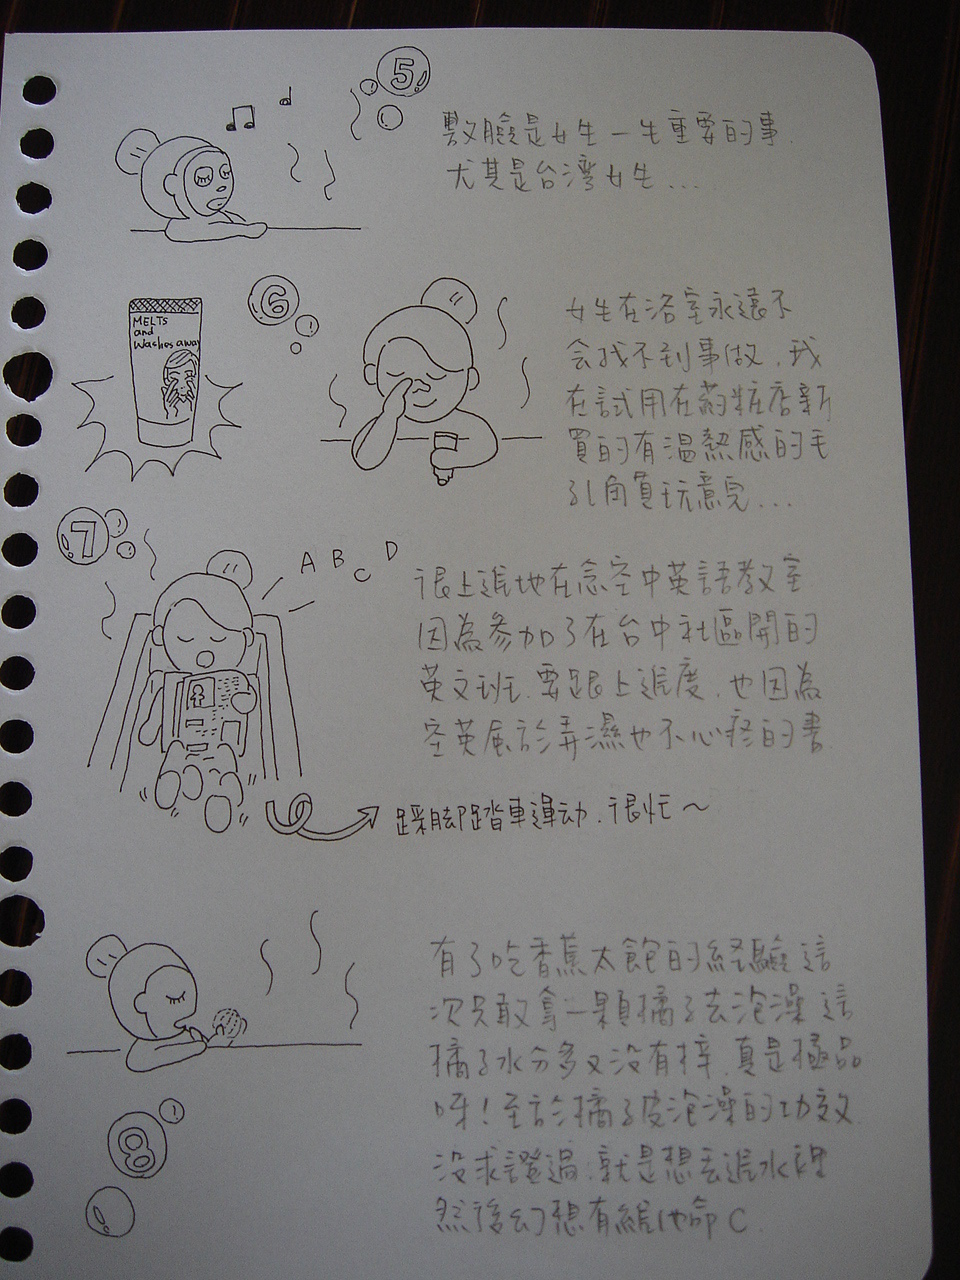 5
敷臉是女生一生重要的事.
尤其是台湾女生...
6
MELTs
and
washes away
女生在浴室永遠不
会找不到事做，我
在試用在药粧店新
買的有溫熱感的毛
孔角質玩意兒...
7
A B C D
很上進地在念空中英語教室
因為參加了在台中社區開的
英文班.要跟上進度.也因為
空英屬於弄濕也不心疼的書.
踩脚踏車運动.很忙~
8
有了吃香蕉太飽的経驗這
次只敢拿一顆橘子去泡澡這
橘子水分多又没有梓.真是極品
呀!至於橘子皮泡澡的功效
沒求證過.就是想丢進水裡
然後幻想有維他命C.